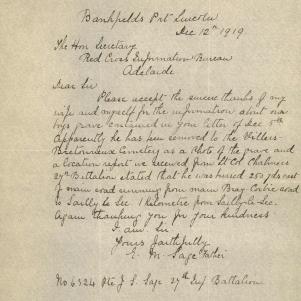 Bankfields Prt Lincoln
Dec 12th 1919
The Hon Secretary
Red Cross Information Bureau
Adelaide
Dear Sir
Please accept the sincere thanks of my
wife and myself for the information about our
boys grave contained in your letter of Dec 9th
Apparently he has been removed to the Villers-
Bretonneux Cemetery as a Photo of the grave and
a location report we received from Lt Col Chalmers
27th Battalion stated that he was buried 250 yds east
of main road running from main Bray-Corbie road
to Sailly-le-Sec 1 Kilometre from Sailly-le-Sec.
Again thanking you for your kindness
I am Sir
Yours faithfully
E. M. Sage Father
No 6324 Pte J. S. Sage 27th Inf Battalion